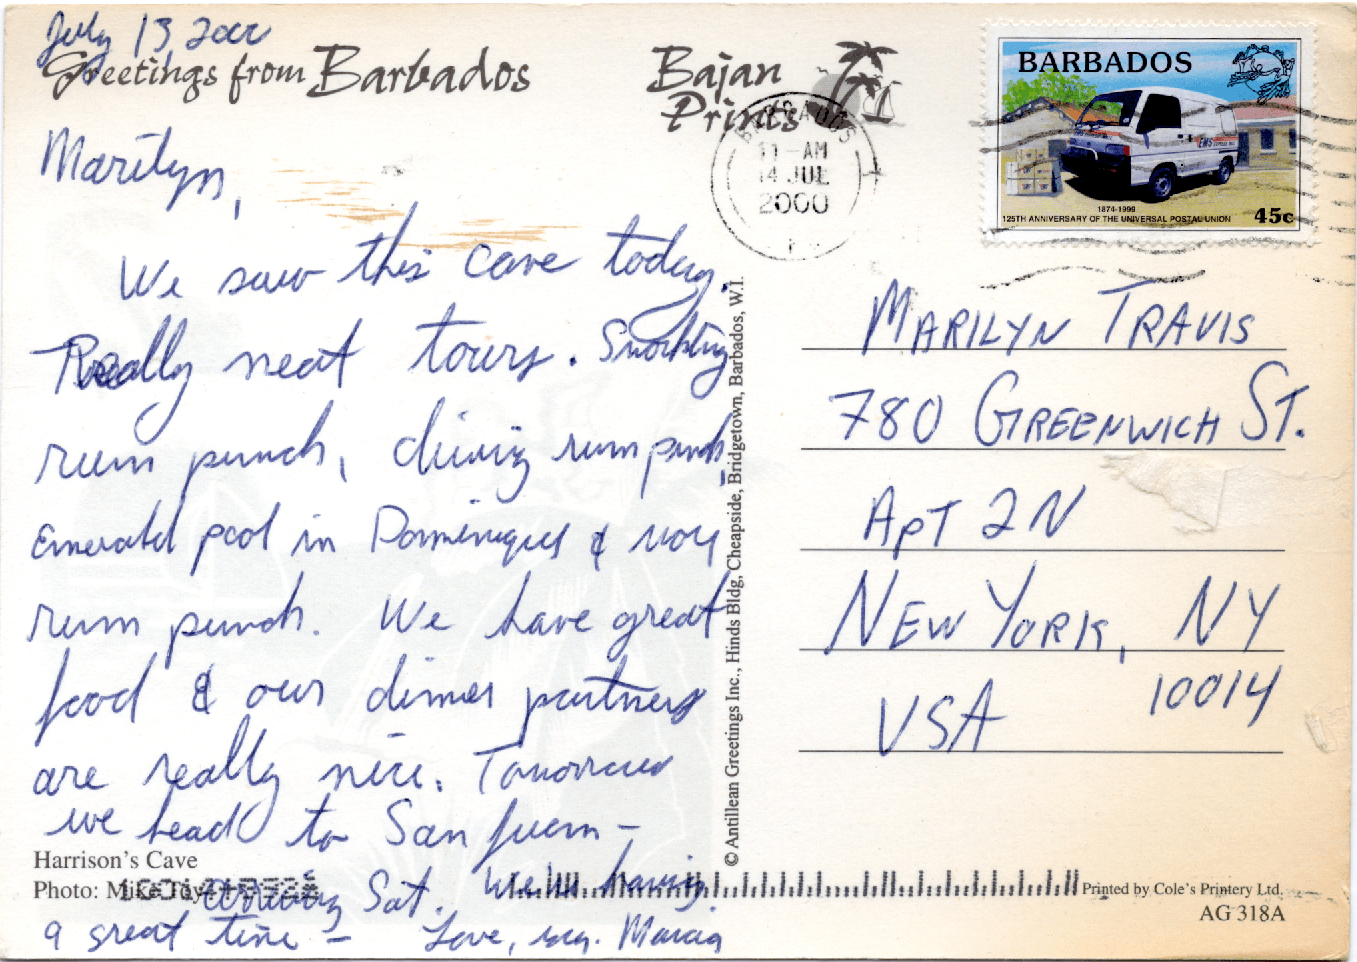 July 13 2000
Greetings from Barbados
Bajan
Prints
BARBADOS
11-AM
14 JUL
2000
BARBADOS
EMS
1874-1999
125TH ANNIVERSARY OF THE UNIVERSAL POSTAL UNION
45c
Marilyn,
We saw this cave today.
Really neat tours. Snorkling
rum punch, diving rum punch,
Emerald pool in Dominique & more
rum punch. We have great
food & our dinner partners
are really nice. Tomorrow
we head to San Juan -
arriving Sat. We're having
a great time - Love, Marcia
Harrison's Cave
Photo: Mike Toy
© Antillean Greetings Inc., Hinds Bldg, Cheapside, Bridgetown, Barbados, W.I.
MARILYN TRAVIS
780 GREENWICH ST.
APT 2N
NEW YORK, NY
10014
USA
Printed by Cole's Printery Ltd.
AG 318A